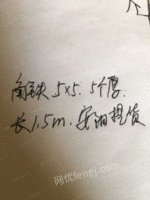 角铁 5×5. 5个厚.
长1.5m. 安阳提货
网优feng1.com